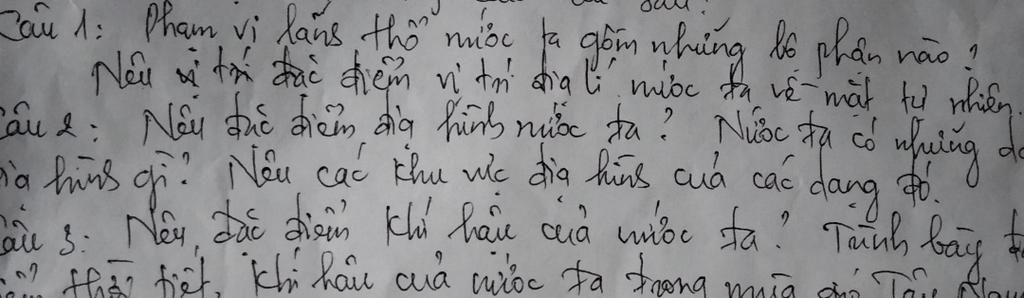 câu sau:
Câu 1: Phạm vi lãnh thổ nước ta gồm những bộ phận nào?
Nêu vị trí đặc điểm vị trí địa lí nước ta về mặt tự nhiên.
Câu 2: Nêu đặc điểm địa hình nước ta? Nước ta có những
địa hình gì? Nêu các khu vực địa hình của các dạng đó.
Câu 3: Nêu đặc điểm khí hậu của nước ta? Trình bày
thời tiết, khí hậu của nước ta trong mùa gió Tây Nam